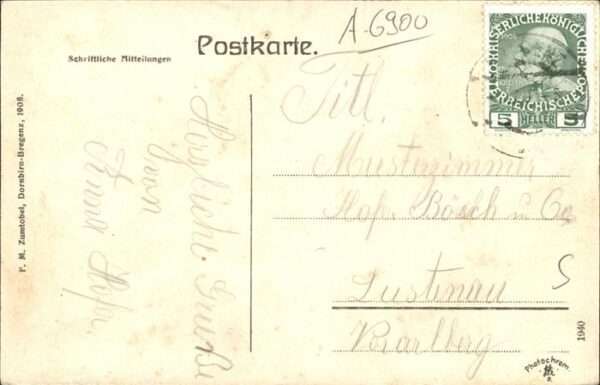 A-6900
Postkarte.
Schriftliche Mitteilungen
KAISERLICHE KÖNIGLICHE
ÖSTERREICHISCHE POST
5 HELLER 5
Titl.
Musterzimmer
Hofer Bösch u Co
Lustenau
Vorarlberg
S
Herzliche Grüße
von
F. M. Zumtobel, Dornbirn-Bregenz, 1908.
1940
Photochrom.